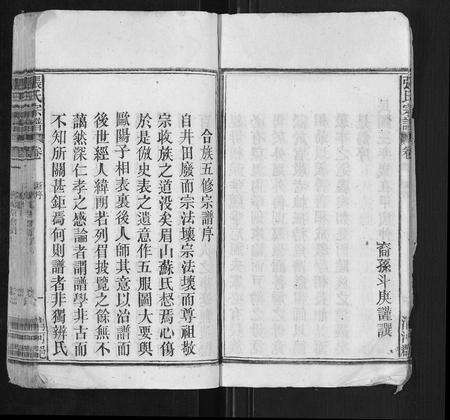 裔孫斗庚謹譔
合族五修宗譜序
自井田廢而宗法壞宗法壞而尊祖敬
宗收族之道沒矣眉山蘇氏惄焉心傷
於是倣史表之遺意作五服圖大要與
歐陽子相表裏後人師其意以治譜而
後世經人緯朙若列眉披覽之餘無不
藹然深仁孝之感論者謂譜學非古而
不知所關甚鉅焉何則譜者非獨辨氏
張氏宗譜
卷
新序
一
張氏宗譜
卷